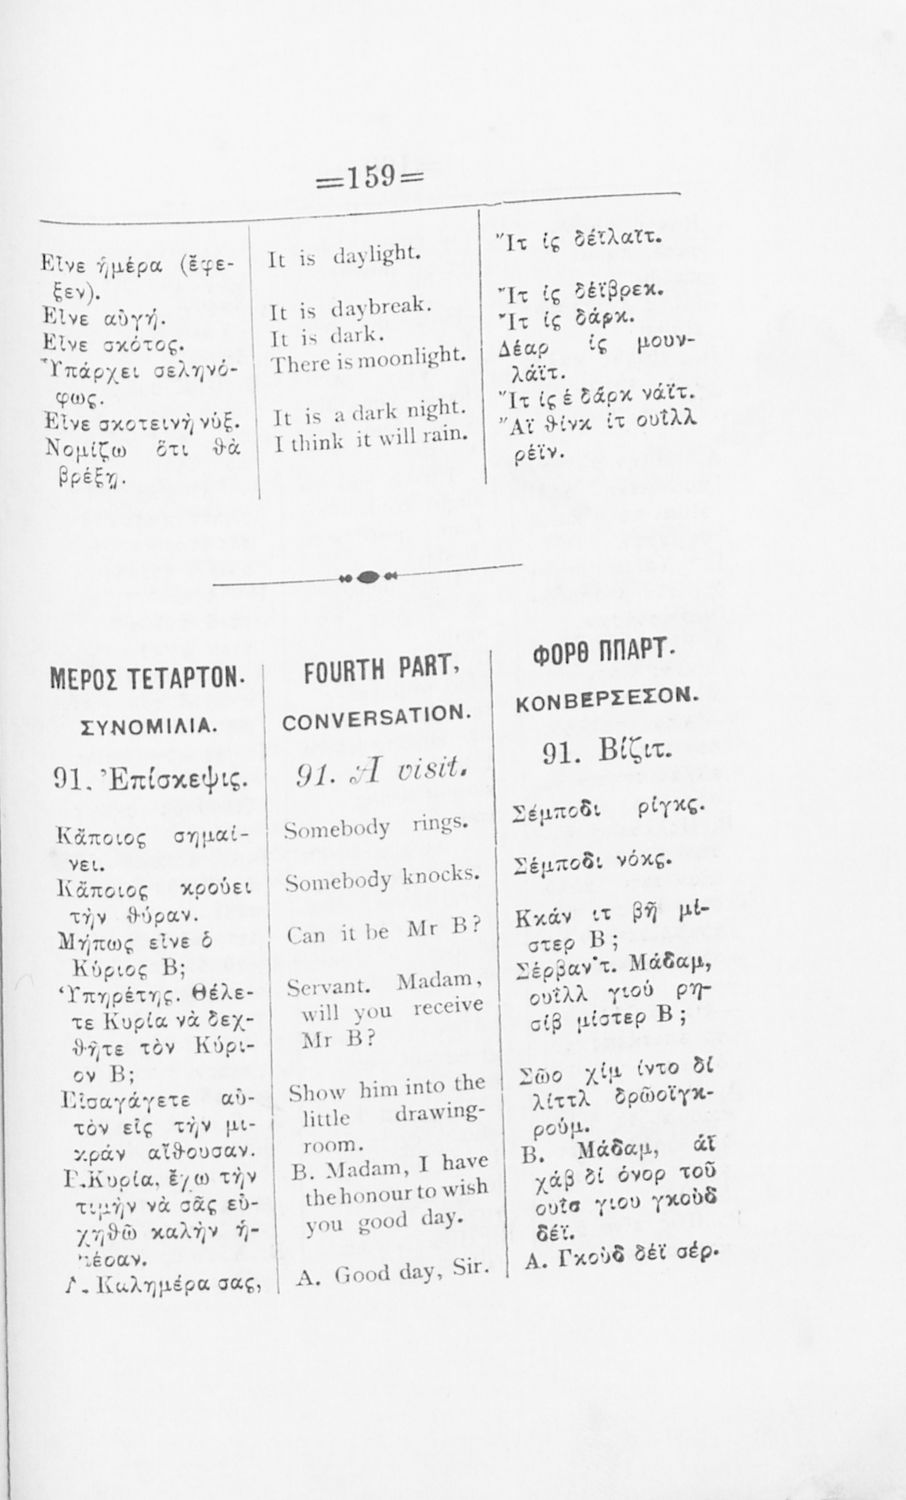 =159=
Εἶνε ἡμέρα (ἔφε-
ξεν).
Εἶνε αὐγή.
Εἶνε σκότος.
Ὑπάρχει σεληνό-
φως.
Εἶνε σκοτεινὴ νύξ.
Νομίζω ὅτι θὰ
βρέξῃ.
It is daylight.
It is daybreak.
It is dark.
There is moonlight.
It is a dark night.
I think it will rain.
Ἴτ ἰς δέϊλαϊτ.
Ἴτ ἰς δέϊβρεκ.
Ἴτ ἰς δάρκ.
Δέαρ ἰς μουν-
λάϊτ.
Ἴτ ἰς ἐ δάρκ νάϊτ.
Ἄϊ θίνκ ἰτ οὐΐλλ
ρέϊν.
ΜΕΡΟΣ ΤΕΤΑΡΤΟΝ.
ΣΥΝΟΜΙΛΙΑ.
91. Ἐπίσκεψις.
Κᾄποιος σημαί-
νει.
Κᾄποιος κρούει
τὴν θύραν.
Μήπως εἶνε ὁ
Κύριος Β;
Ὑπηρέτης. Θέλε-
τε Κυρία νὰ δεχ-
θῆτε τὸν Κύρι-
ον Β;
Εἰσαγάγετε αὐ-
τὸν εἰς τὴν μι-
κρὰν αἴθουσαν.
Β. Κυρία, ἔχω τὴν
τιμὴν νὰ σᾶς εὐ-
χηθῶ καλὴν ἡ-
μέραν.
Α. Καλημέρα σας,
FOURTH PART,
CONVERSATION.
91. A visit.
Somebody rings.
Somebody knocks.
Can it be Mr B?
Servant. Madam,
will you receive
Mr B?
Show him into the
little drawing-
room.
B. Madam, I have
the honour to wish
you good day.
A. Good day, Sir.
ΦΟΡΘ ΠΠΑΡΤ.
ΚΟΝΒΕΡΣΕΣΟΝ.
91. Βίζιτ.
Σέμποδι ρίγκς.
Σέμποδι νόκς.
Κκάν ιτ βῆ μί-
στερ Β;
Σέρβαν'τ. Μάδαμ,
οὐΐλλ γιοὺ ρη-
σίβ μίστερ Β;
Σῶο χίμ ίντο δί
λίττλ δρῶοϊγκ-
ρούμ.
Β. Μάδαμ, ἄϊ
χάβ δί όνορ τοῦ
ουΐσ γιου γκούδ
δέϊ.
Α. Γκούδ δέϊ σέρ.